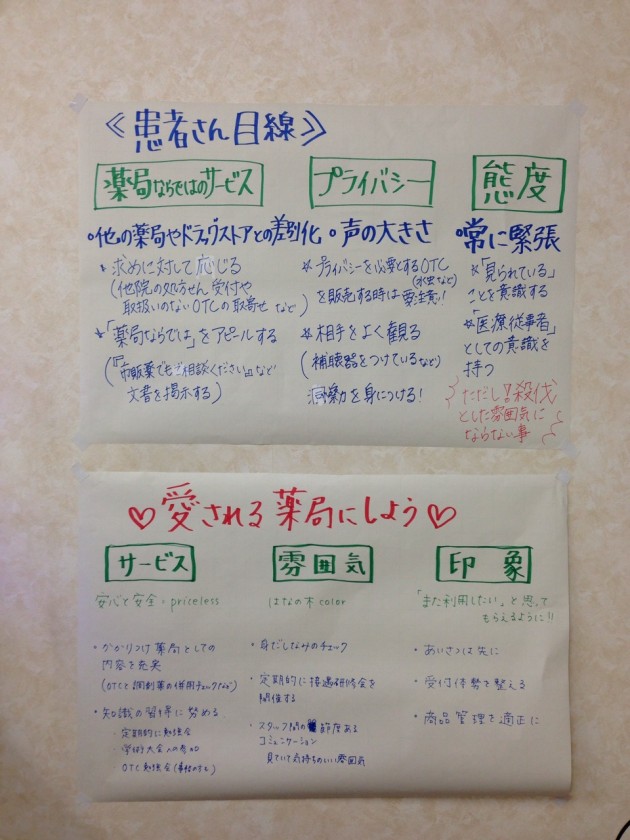 ≪患者さん目線≫
薬局ならではのサービス
・他の薬局やドラッグストアとの差別化
☆求めに対して応じる
(他院の処方せん受付や
取扱いのないOTCの取寄せなど)
☆「薬局ならでは」をアピールする
(『市販薬でもご相談ください』など
文書を掲示する)
プライバシー
・声の大きさ
☆プライバシーを必要とするOTC
(水虫など)
を販売する時は要注意!!
☆相手をよく観る
(補聴器をつけているなど)
洞察力を身につける!
態度
・常に緊張
☆「見られている」
ことを意識する
☆「医療従事者」
としての意識を
持つ
ただし!殺伐
とした雰囲気に
ならない事
♡愛される薬局にしよう♡
サービス
安心と安全・priceless
・かかりつけ薬局としての
内容を充実
(OTCと調剤薬の併用チェックなど)
・知識の習得に努める
・定期的に勉強会
・学術大会への参加
OTC勉強会
雰囲気
はなの木color
・身だしなみのチェック
・定期的に接遇研修会を
開催する
・スタッフ間の節度ある
コミュニケーション
見ていて気持ちのいい雰囲気
印象
「また利用したい」と思って
もらえるように!!
・あいさつは先に
・受付体勢を整える
・商品管理を適正に